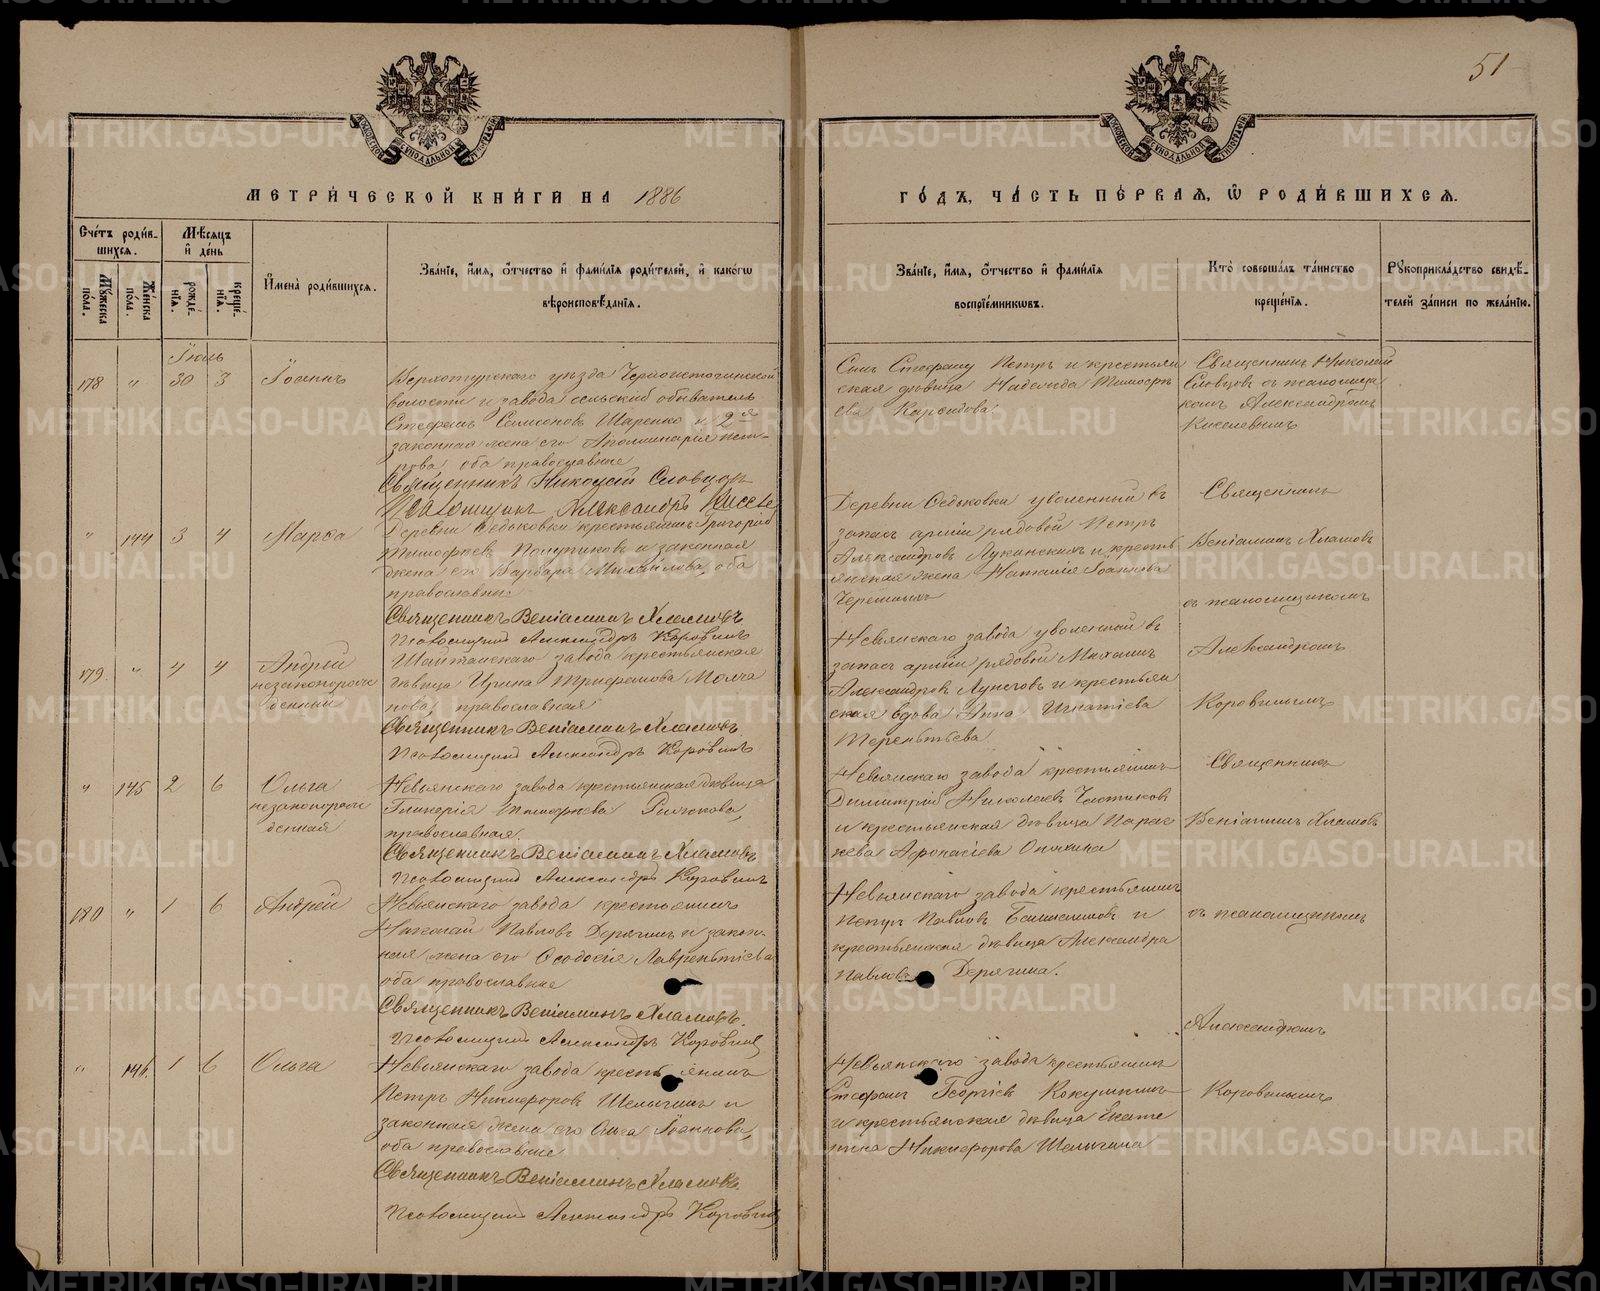 51
МЕТРИ́ЧЕСКОЙ КНИ́ГИ НА 1886
ГО́ДЪ, ЧА́СТЬ ПЕ́РВАЯ, Ѡ҆ РОДИ́ВШИХСЯ.
Сче́тъ роди́в-
шихся.
Мꙋ́жеска по́ла.
Же́нска по́ла.
Мѣ́сяцъ
и҆ де́нь
рожде́-нїя.
креще́-нїя.
И҆мена̀ роди́вшихся.
Зва́нїе, и҆́мя, ѻ҆́тчество и҆ фами́лїя роди́телей, и҆ како́гѡ
вѣроисповѣ́данїя.
Зва́нїе, и҆́мя, ѻ҆́тчество и҆ фами́лїя
воспрїе́мникѡвъ.
Кто̀ соверша́лъ та́инство
креще́нїя.
Рꙋкоприкла́дство свидѣ́-
телей за́писи по жела́нїю.
Іюль
178 " 30 3 Іоаннъ
Верхотурскаго уѣзда Черноисточинской
волости и завода сельскій обыватель
Стефанъ Самсоновъ Шаренко и 2ая
законная жена его Аполлинарія Пет-
рова, оба православные
Священникъ Николай Словцовъ
Псаломщикъ Александръ Кисел
Сынъ Стефану Петръ и крестьян
ская дѣвица Надежда Тимофѣ
ева
Священникъ Николай
Словцовъ съ псаломщи
комъ Александромъ
Киселевымъ
" 144 3 4 Марѳа
Деревни Ѳедьковки крестьянинъ Григорій
Тимофѣевъ Полупиковъ и законная
жена его Варвара Михайлова, оба
православные
Священникъ Веніаминъ Хламовъ
Псаломщикъ Александръ Коровинъ
Деревни Ѳедьковки уволенный въ
запасъ арміи рядовой Петръ
Александровъ Лукинскихъ и кресть
янская жена Наталія Іоаннова
Священникъ
Веніаминъ Хламовъ
съ псаломщикомъ
179 " 4 4 Андрей
незаконорож
денный
Шайтанскаго завода крестьянская
дѣвица Ирина Трифонова Молча
нова, православная
Священникъ Веніаминъ Хламовъ
Псаломщикъ Александръ Коровинъ
Невьянскаго завода уволенный въ
запасъ арміи рядовой Михаилъ
Александровъ Лунеговъ и крестьян
ская вдова Анна Игнатіева
Терентьева
Александромъ
Коровинымъ
" 145 2 6 Ольга
незаконорож
денная
Невьянскаго завода крестьянская дѣвица
Гликерія Тимофѣева
православная
Священникъ Веніаминъ Хламовъ
Псаломщикъ Александръ Коровинъ
Невьянскаго завода крестьянинъ
Димитрій Николаевъ Частиковъ
и крестьянская дѣвица Параск
кева Афонасіева
Священникъ
Веніаминъ Хламовъ
180 " 1 6 Андрей
Невьянскаго завода крестьянинъ
Николай Павловъ Дерягинъ и закон-
ная жена его Ѳеодосія Лаврентіева
оба православные
Священникъ Веніаминъ Хламовъ.
Псаломщикъ Александръ Коровинъ
Невьянскаго завода крестьянинъ
Петръ Павловъ и
крестьянская дѣвица Александра
Павлова Дерягина.
съ псаломщикомъ
Александромъ
" 146. 1 6 Ольга
Невьянскаго завода крестьянинъ
Петръ Никифоровъ Шелыгинъ и
законная жена его Ольга Іоаннова,
оба православные
Священникъ Веніаминъ Хламовъ.
Псаломщикъ Александръ Коровинъ
Невьянскаго завода крестьянинъ
Стефанъ Георгіевъ Кокушкинъ
и крестьянская дѣвица Екате
рина Никифорова Шелыгина
Коровинымъ
METRIKI.GASO-URAL.RU